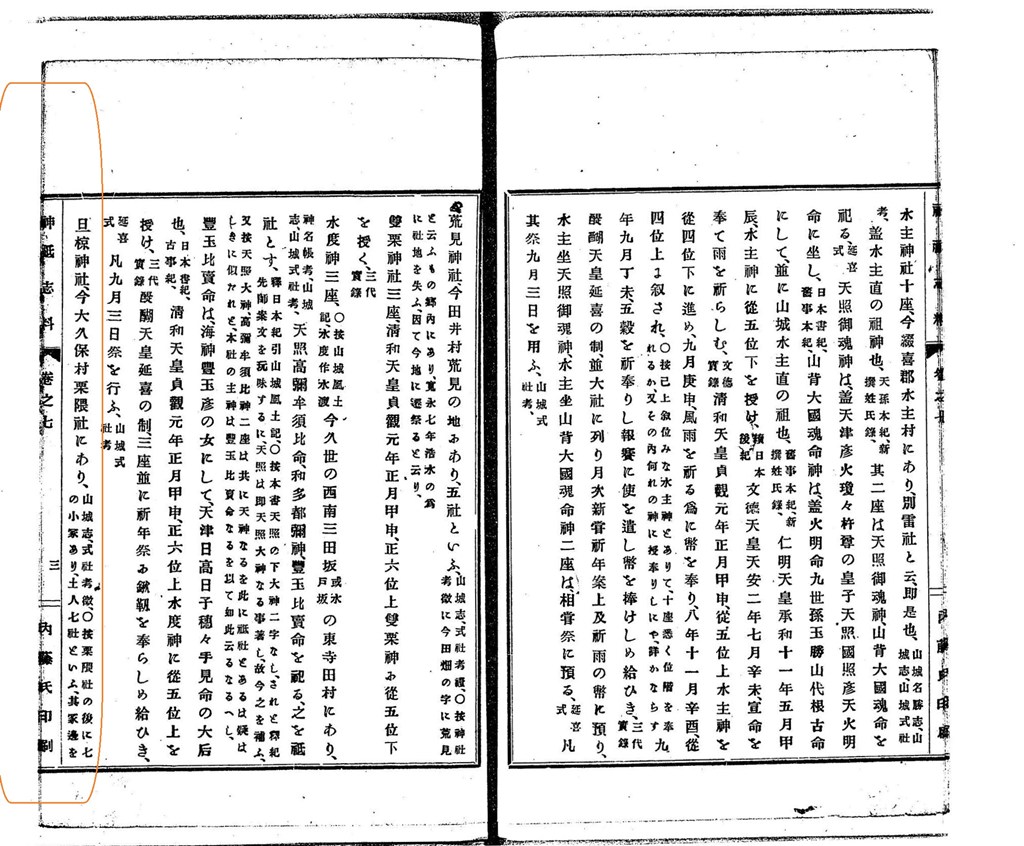 水主神社十座、今綴喜郡水主村にあり、別雷社と云、即是也、山城名勝志山城志、山城式社
考、蓋水主直の祖神也、天孫本紀、新撰姓氏錄、其二座は天照御魂神、山背大國魂命を
祀る、延喜式天照御魂神は蓋天津彦火瓊々杵尊の皇子天照國照彦天火明
命に坐し、日本書紀、舊事本紀、山背大國魂命神は、蓋火明命九世孫玉勝山代根古命
にして、並に山城水主直の祖也、舊事本紀、新撰姓氏錄、仁明天皇承和十一年五月甲
辰、水主神に從五位下を授け、續日本後紀文德天皇天安二年七月辛未、宣命を
奉て雨を祈らしむ、文德實錄清和天皇貞觀元年正月甲申、從五位上水主神を
從四位下に進め、九月庚申、風雨を祈る爲に幣を奉り、八年十一月辛酉、從
四位上に叙され、〇按已上叙位みな水主神とありて、十座悉く位階を奉られるか、又その內何れの神に授奉りしにや、詳かならず九
年九月丁未、五穀を祈奉りし報賽に使を遣し幣を捧けしめ給ひき、三代實錄
醍醐天皇延喜の制、並大社に列り月次新嘗祈年案上及祈雨の幣に預り、
水主坐天照御魂神、水主坐山背大國魂命神二座は、相嘗祭に預る、延喜式凡
其祭九月三日を用ふ、山城式社考、
荒見神社、今田井村荒見の地にあり、五社といふ、山城志、式社考證、〇按神社考徵に今田畑の字に荒見
と云ふもの鄉內にあり、寬永七年浩水の爲に社地を失ふ、因て今地に遷祭ると云り、
雙栗神社三座、清和天皇貞觀元年正月甲申、正六位上雙栗神に從五位下
を授く、三代實錄
水度神三座、〇按山城風土記、水度作水渡今久世の西南三田坂或水戸坂の東寺田村にあり、
神名帳考山城志、山城式社考、天照高彌牟須比命、和多都彌神、豐玉比賣命を祀る、之を祗
社とす、釋日本紀引山城風土記、〇按本書天照の下大神二字なし、されと釋紀先師案文を玩味するに天照は即天照大神なる事著し、故今之を補ふ、
又按天照大神高彌牟須比神二座は共に天神なるを此に祗社とあるは疑はしきに似かれと、本社の主神は豐玉比賣命なるを以て如此云るなるへし、
豐玉比賣命は、海神豐玉彦の女にして、天津日高日子穗々手見命の大后
也、日本書紀、古事紀、清和天皇貞觀元年正月甲申、正六位上水度神に從五位上を
授け、三代實錄醍醐天皇延喜の制、三座並に祈年祭に鍬靱を奉らしめ給ひき、
延喜式凡九月三日祭を行ふ、山城式社考
旦椋神社、今大久保村栗隈社にあり、山城志、式社考徵〇按栗隈社の後に七の小冢あり、土人七社といふ、其冢邊を
神祗志料 卷之七 三 內藤氏印刷